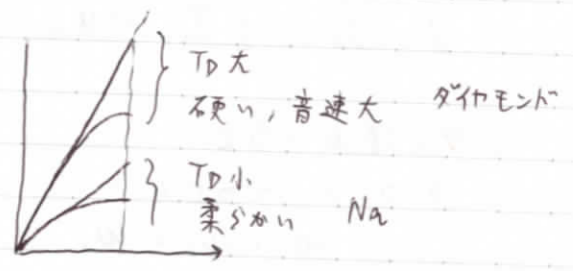 TD大
硬い,音速大 ダイヤモンド
TD小
柔らかい Na